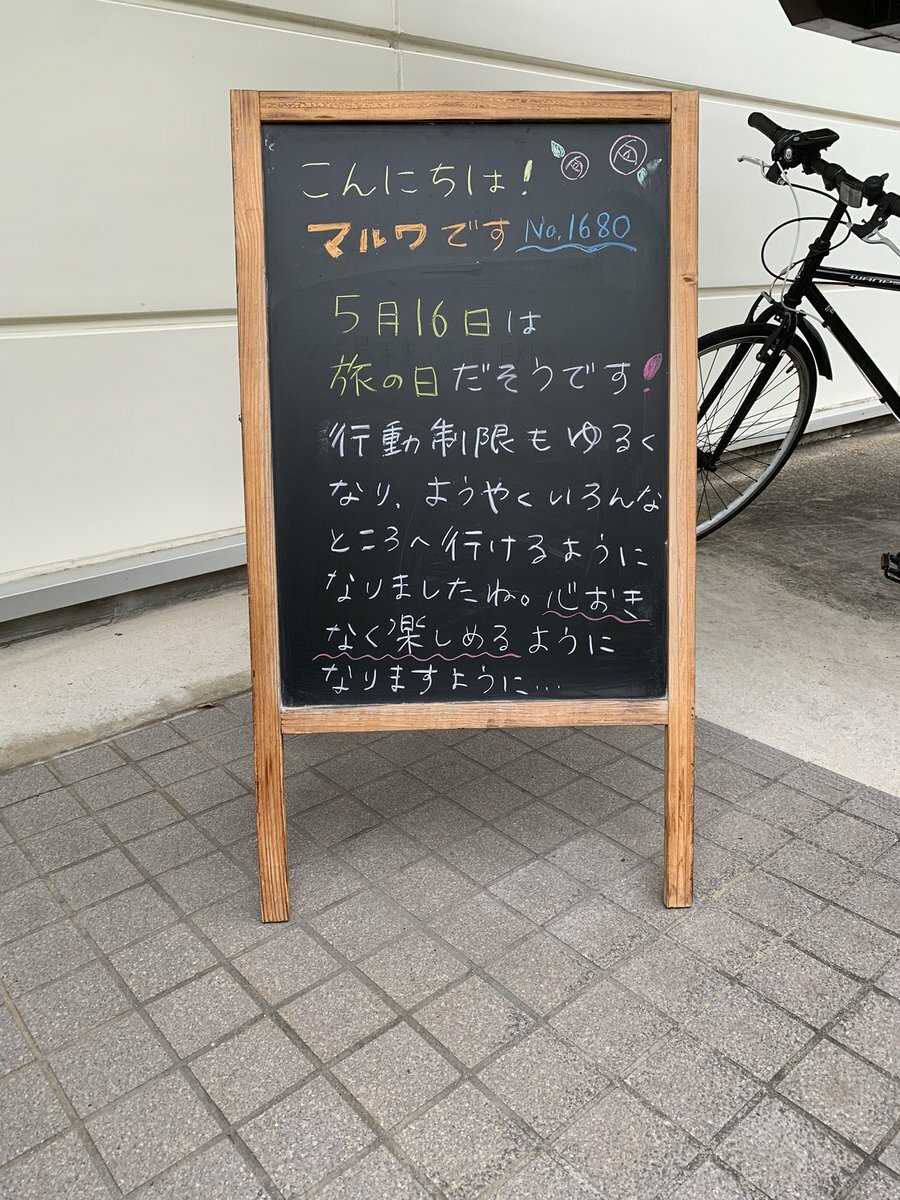 こんにちは!
マルワです No.1680
5月16日は
旅の日だそうです!
行動制限もゆるく
なり、ようやくいろんな
ところへ行けるように
なりましたね。心おき
なく楽しめるように
なりますように…